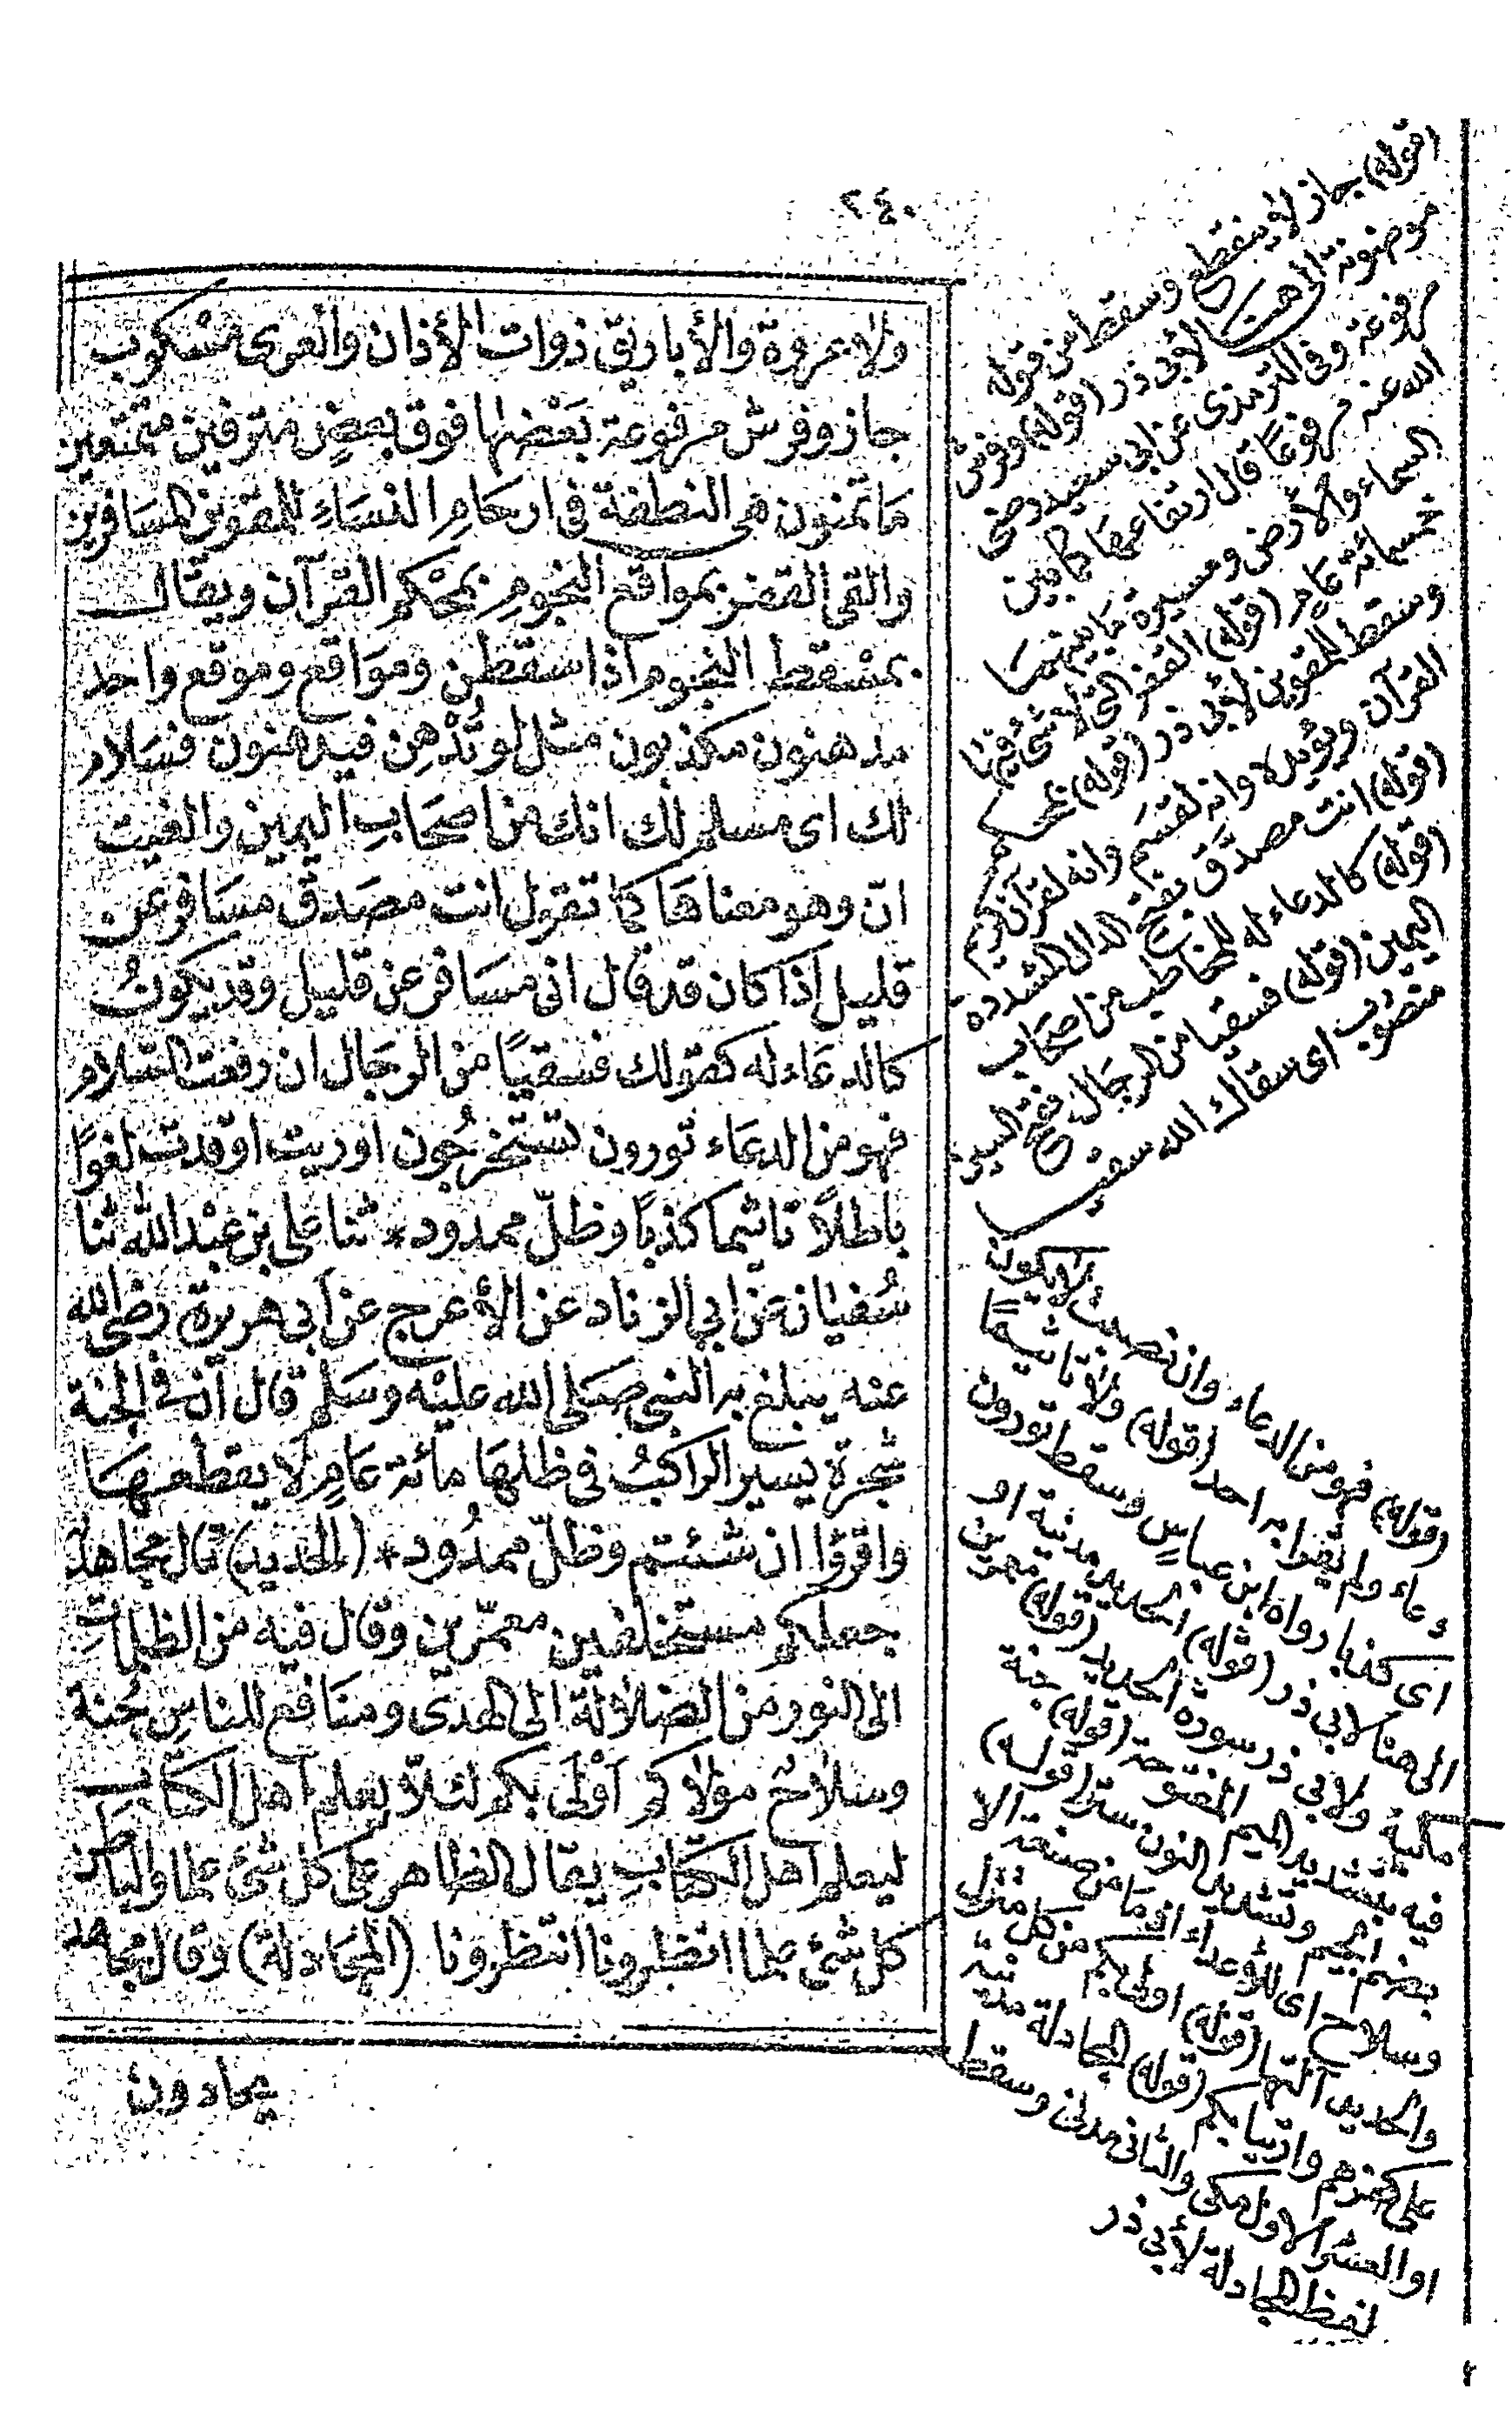 ٢٤٠
ولا عروة والأباريق ذوات الأذان والعرى مسكوب
جار وفرش مرفوعة بَعْضها فوق بعضٍ مترفين متمتعين
مَا تمنون هى النطفة فى ارحَامِ النسَاءِ للمقوين للمسَافرين
والقى القفر بمواقع النجُومِ بمحْكم القرآن ويقال
بمسْقط النجوم اذا سقطن ومَواقع وموقع واحد
مدهنون مكذبون مثل لو تُدْهِن فيدهنون فسَلام
لك اى مسلم لك انك من اصحَابِ اليمين والغيت
انّ وهو معناهَا كما تقول انت مصَدق مسَافر عن
قليل اذا كان قد قال انى مسَافر عن قليل وقد يكونُ
كالدعَاء له كقولك فسقيًا من الرجال ان رفعت السّلام
فهو من الدعَاء تورون تستخرجُون اوريت اوقدت لغوًا
باطلاً تأثيما كذبًا وظلّ ممدود * ثنا على بن عبْد الله ثنا
سُفيان عن ابى الزناد عن الأعرج عن ابى هريرة رضى الله
عنه يبلغ به النبى صَلى الله عليْه وسَلم قال ان فى الجنة
شجرة يسير الراكبُ فى ظلهَا مائة عَامٍ لا يقطعهَا
واقرؤا ان شئتم وظلّ ممدُود * (الحديد) قال مجاهد
جعلكم مستخلفين معمّرين وقال فيه من الظلماتِ
الى النور من الضلالة الى الهدى ومنَافع للناسِ جُنة
وسلاحٌ مولاكم اَوْلَى بكم لئلّا يعلم اهل الكتاب
ليعلم اهل الكتَابِ يقال الظاهر على كل شئ علما والباطن
كل شئ علما انظرونا انتظرونا (المجَادلة) وقال مجاهد
يحادون
(قوله) جار لا ينقطع وسقط من قوله
موضونة الى هنا لأبى ذر (قوله) وفرش
مرفوعة وفى الترمذى عن ابى سعيد رضى
الله عنه مرفوعًا قال ارتفاعها كما بين
السماء والأرض ومسيرة ما بينهما
خمسمائة عَامٍ (قوله) القفر التى لا شئ فيها
وسقط للمقوين لأبى ذر (قوله) بمحكم
القرآن ويؤيده وانه لقسَم وانه لقرآن كريم
(قوله) انت مصدّق بفتح الدال المشددة
(قوله) كالدعاء له للمخاطب من اصحَاب
اليمين (قوله) فسقيا من الرجال بفتح السين
منصُوب اى سقاك الله سقيا
(قوله) فهو من الدعاء وان نصبت لا يكون
دعاء ولم يقرا به احد (قوله) ولا تاثيمًا
اى كذبا رواه ابن عباسٍ وسقط تورون
الى هنا لابى ذر (قوله) الحديد مدنية او
مكية ولابى ذر سورة الحديد (قوله) معمرين
فيه بتشديد الميم المفتوحة (قوله) جنة
بضم الجيم وتشديد النون ستر (قوله)
وسلاح اى للأعداء وما من صنعة الا
والحديد آلتها (قوله) اولى بكم من كل منزل
على كفرهم وارتيابكم (قوله) المجادلة مدنية
او العشر الاول مكى والثانى مدنى وسقط
لفظ المجادلة لأبى ذر